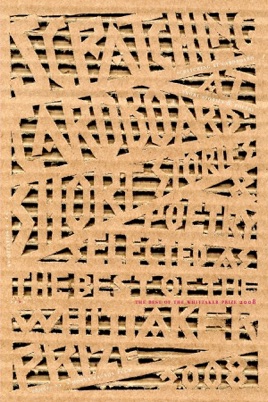 SCRATCHING
AT
CARDBOARD:
STORIES
SHORT &
POETRY
SELECTED AS
THE BEST OF THE
THE BOOK OF THE WHITTAKER PRIZE 2008
WHITTAKER
PRIZE
2008